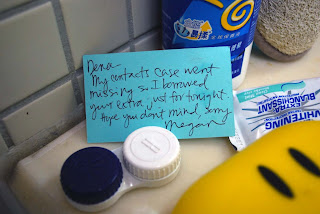 Dena-
My contacts case went
missing so I borrowed
your extra, just for tonight.
Hope you don't mind, sorry
Megan
EXTRA
BLANCHISSANT
WHITENING